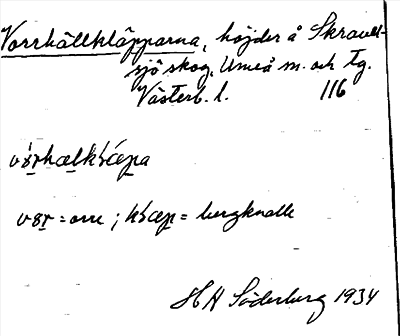 Vorrhällkläpparna, höjder å Skravel-
sjö skog, Umeå m. och tg.
Västerb. l. 116
vȣrhælkʹlæpa
vȣr = orre ; kʹlæp = bergknalle
H H Söderburg 1934